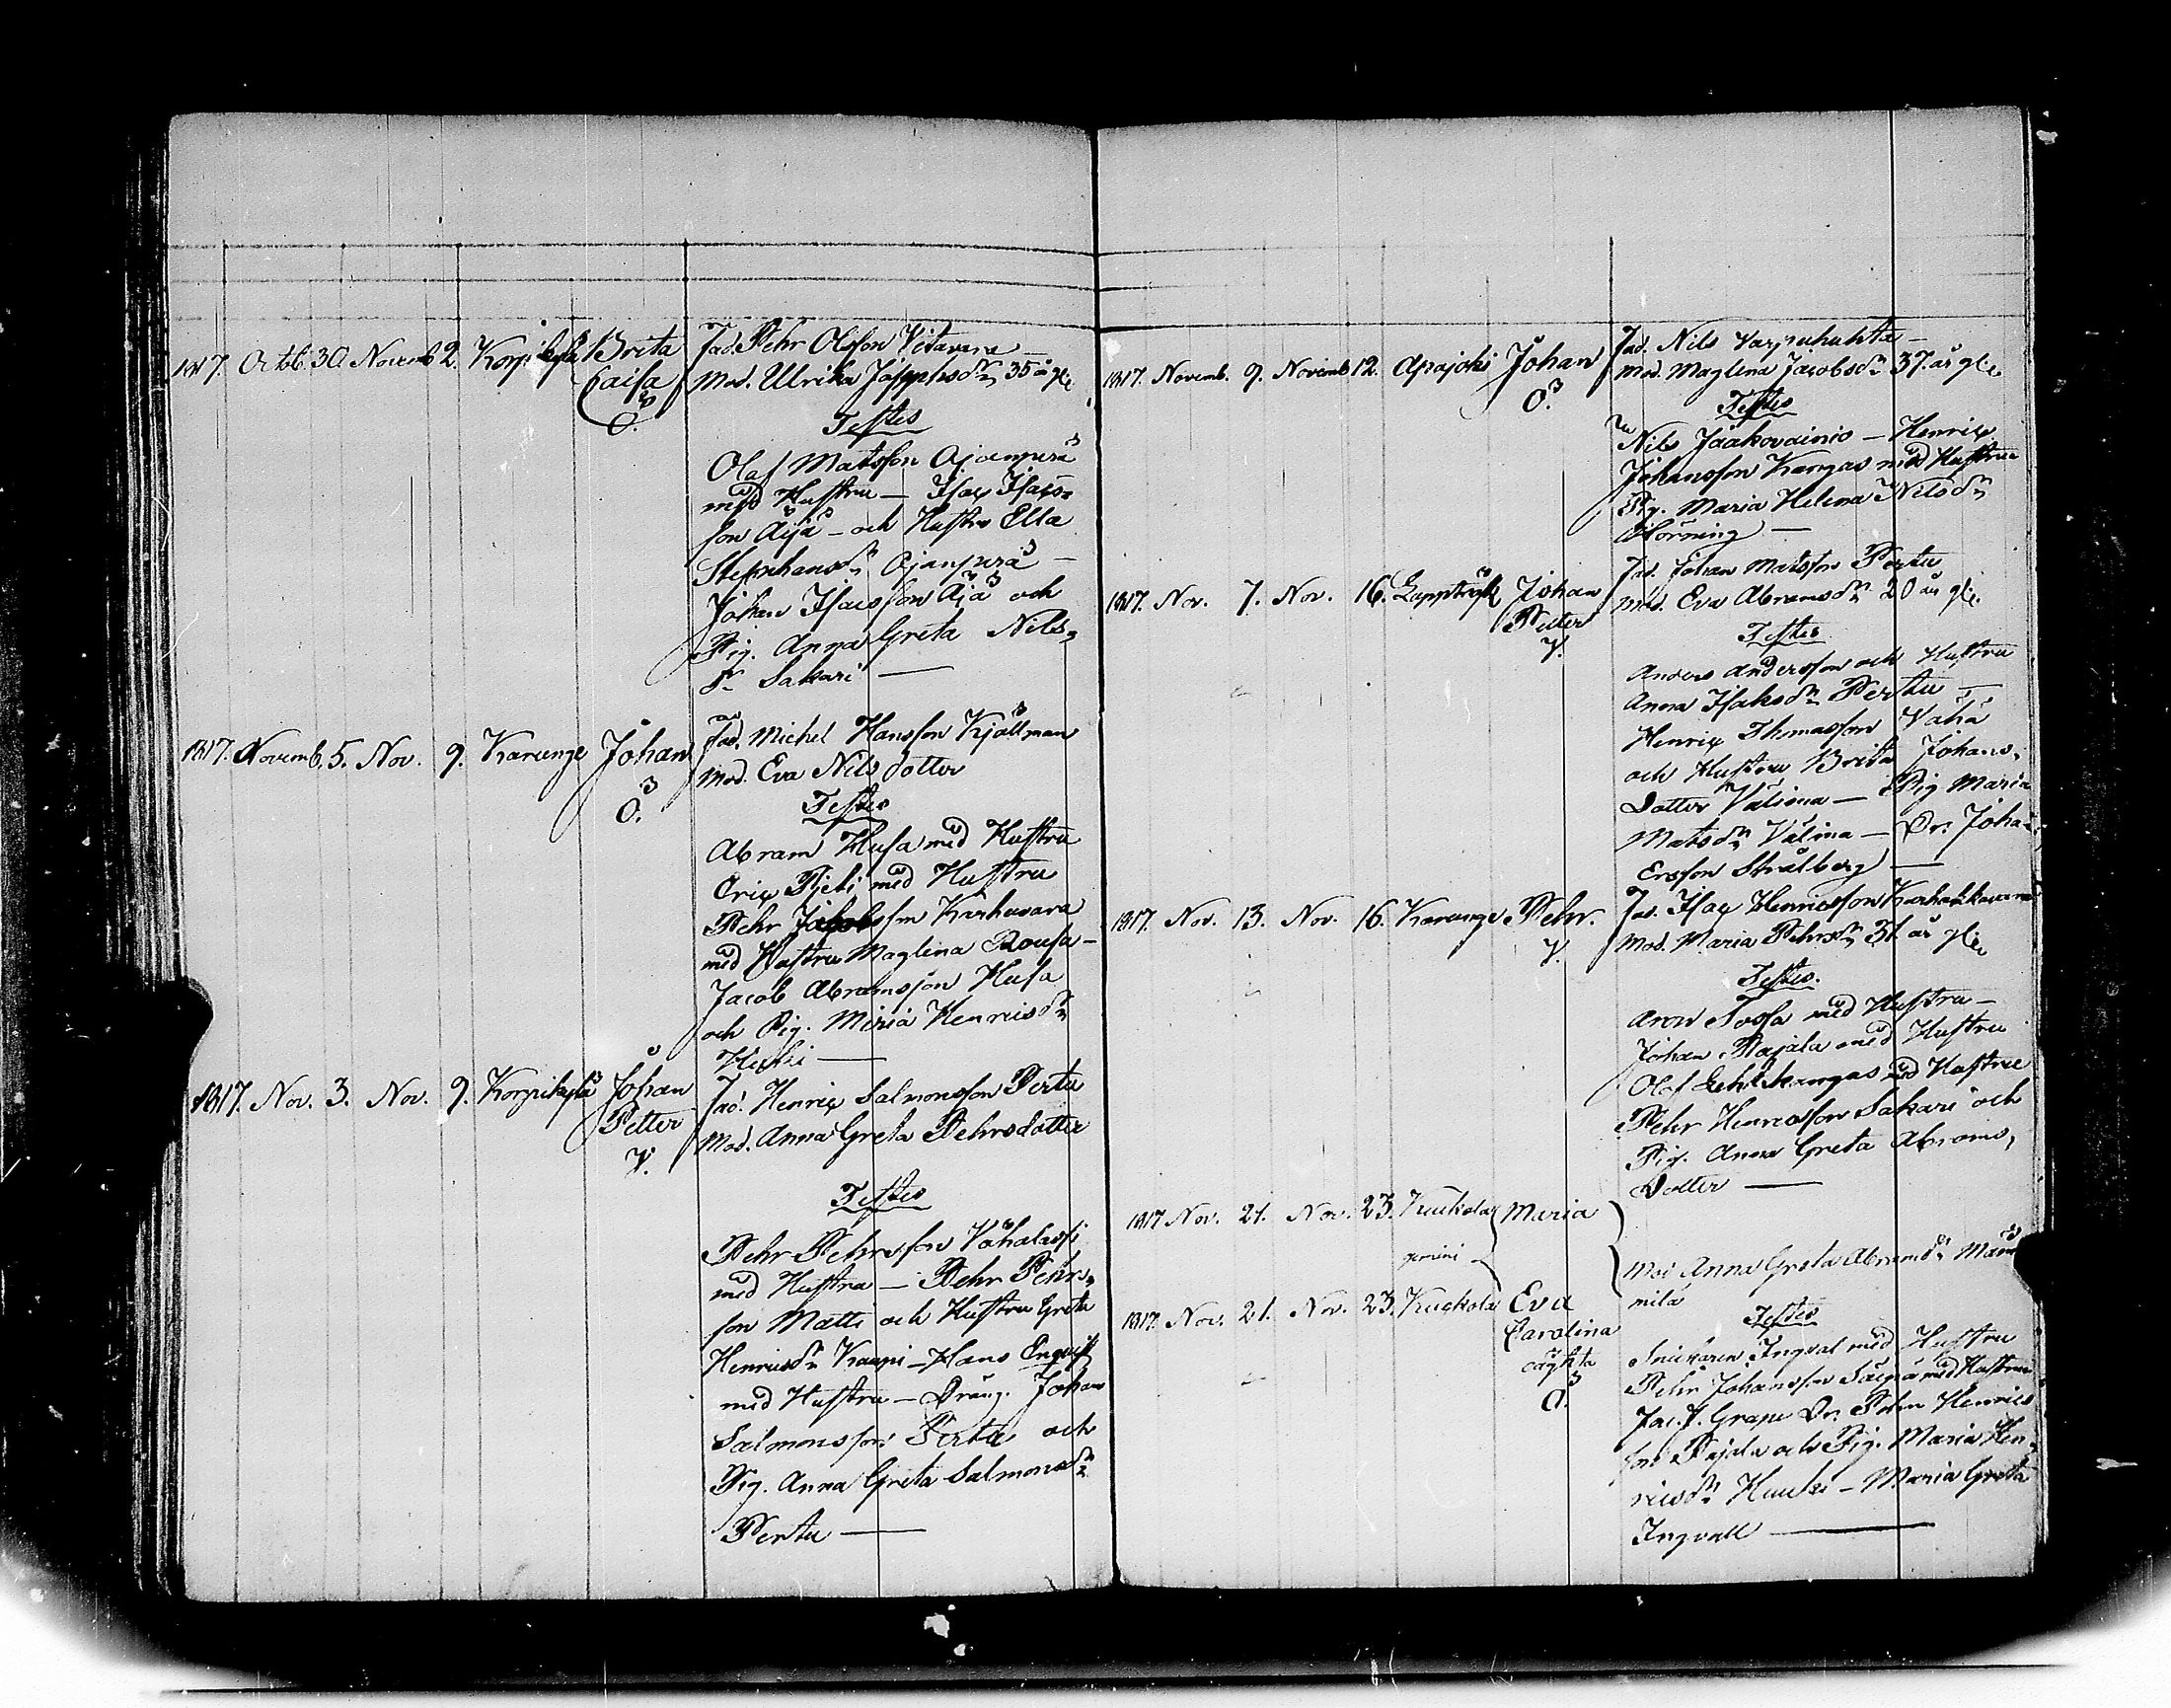 1817. Octob. 30. Novemb. 2. Korpikylä Brita Fad. Pehr Olsson Vitavara
Caisa Mod. Ulrika Josephsdr 35 år gl.
Testes
Olaf Matsson Ajanperä
med Hustru — Isac Isacs-
son Äijä — och Hustru Ella
Stephansdr Ajanperä —
Johan Isacsson Äijä och
Pig. Anna Greta Nils-
dr Sakari —
1817. Novemb. 5. Nov. 9. Karunge Johan Fad. Michel Hansson Kjällman
Ö. Mod. Eva Nils dotter
Testes
Abram Husa med Hustru
Eric Pjeti med Hustru
Pehr Jacobsson Karhuvara
med Hustru Maglena Rousa —
Jacob Abramsson Husa
och Pig. Maria Henricsdr
1817. Nov. 3. Nov. 9. Korpikylä Johan Fad. Henric Salmonsson Pertu
Petter Mod. Anna Greta Pehrsdotter
V.
Testes
Pehr Pehrsson Vähälassi
med Hustru — Pehr Pehrs-
son Matti och Hustru Greta
Henricsdr Kauppi — Hans Enqvist
med Hustru — Dräng. Johan
Salmonsson Pertu och
Pig. Anna Greta Salmonsdr
Pertu —
1817. Novemb. 9. Novemb 12. Apajoki Johan Fad. Nils Varpuhuhta —
Ö. Mod. Maglena Jacobsdr 37. år gl.
Testes
Nils Jaakovainio — Henric
Johansson Kangas med Hustru
Pig. Maria Helena Nilsdr
Hörning —
1817. Nov. 7. Nov. 16. Lappträsk Johan Fad. Johan Matsson Pertu
Petter Mod. Eva Abramsdr 20 år gl.
V. Testes
Anders Andersson och Hustru
Anna Isaksdr Pertu —
Henric Thomasson Vähä
och Hustru Brita Johans-
Dotter Välimaa — Pig Maria
Matsdr Välima — Dr. Johan
Ersson Strålberg —
1817. Nov. 13. Nov. 16. Karunge Pehr. Fad. Isac Henricsson
V. Mod. Maria Pehrsdr 31. år gl.
Testes.
Aron Tossa med Hustru —
Johan Pajala med Hustru
Olof Lehtikangas med Hustru
Pehr Henricsson Sakari och
Pig. Anna Greta Abrams-
Dotter —
1817 Nov. 21. Nov. 23. Kuckola Maria
gemini
Mod Anna Greta Abramsdr
1817. Nov. 21. Nov. 23. Kuckola Eva
Carolina Testes
oägta Snickaren Ingval med Hustru
Ö. Pehr Johansson Säipä med Hustru
Jac. J. Grape Dr. Pehr Henrics
son Pajala och Pig. Maria Hen-
ricsdr Huuki — Maria Greta
Ingvall —